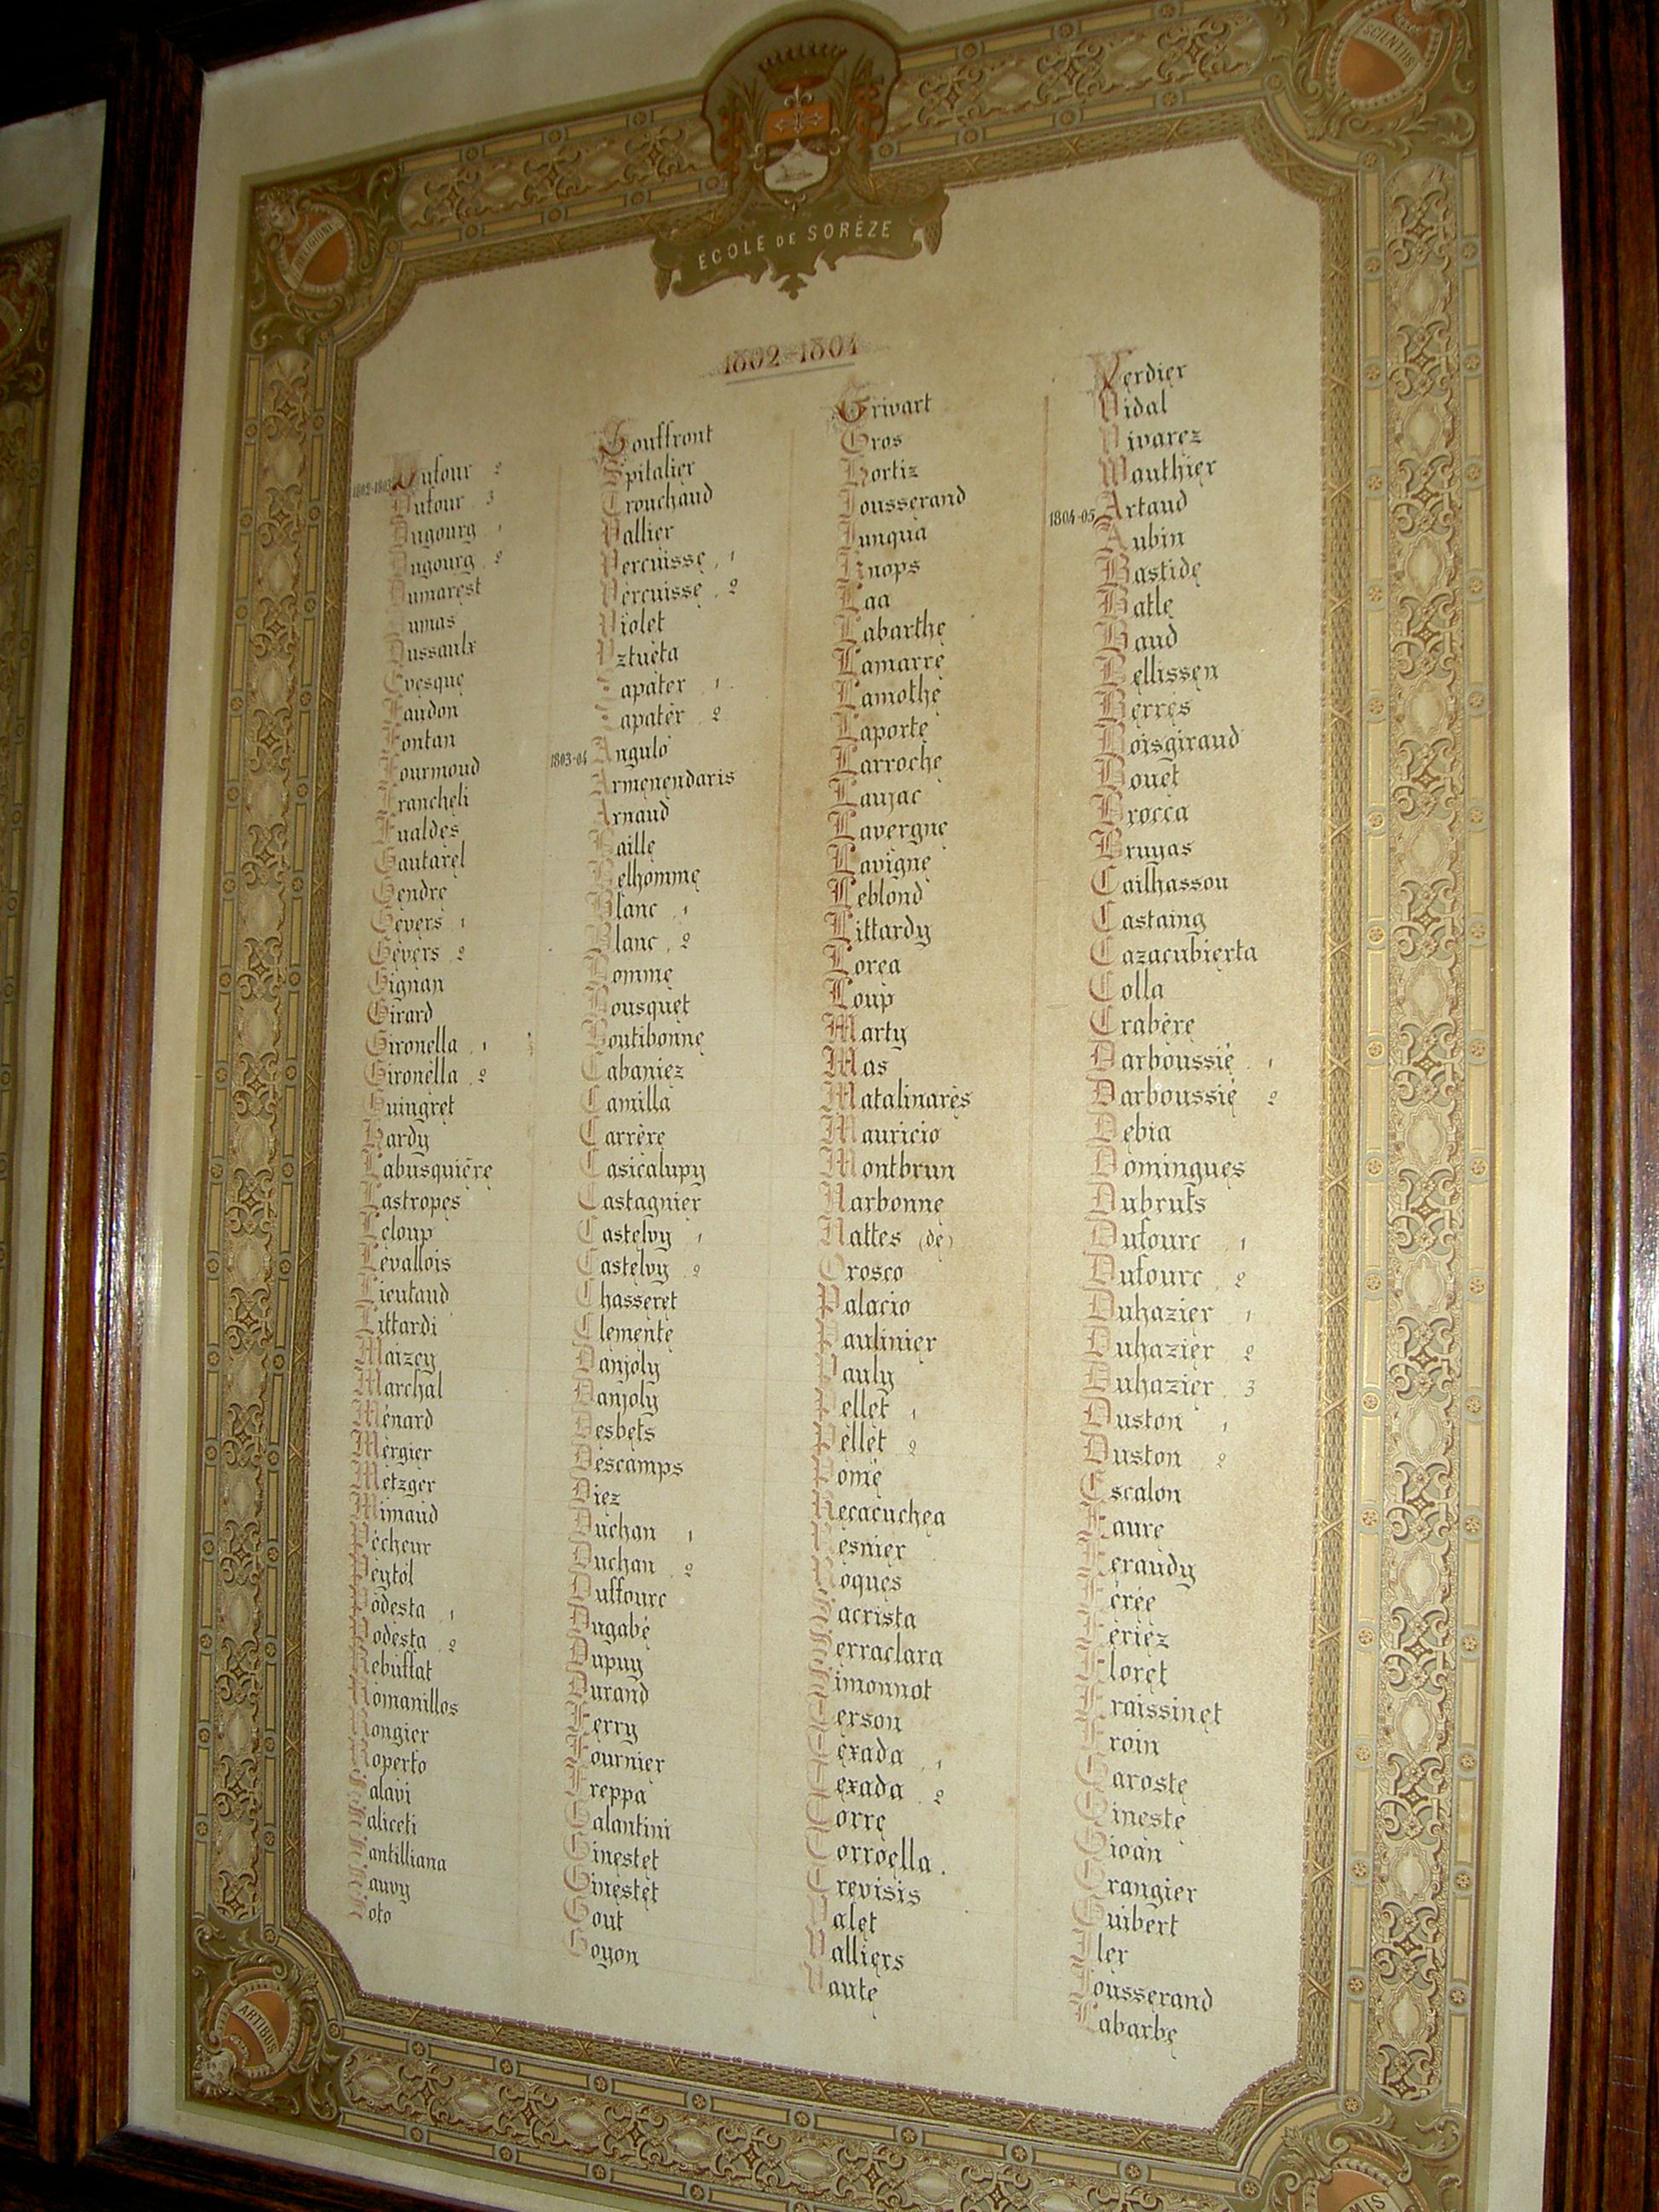 RELIGIONI
SCIENTIIS
ECOLE DE SORÈZE
1802-1804
1802-1803 Dufour 2
Dufour 3
Dugourg 1
Dugourg 2
Dumarest
Dumas
Dussaulx
Evesque
Faudon
Fontan
Fourmoud
Francheli
Fualdès
Gautarel
Gendre
Gevers 1
Gevers 2
Gignan
Girard
Gironella 1
Gironella 2
Guingret
Hardy
Labusquière
Lastropes
Leloup
Levallois
Lieutaud
Littardi
Maizey
Marchal
Ménard
Mergier
Metzger
Mimaud
Pécheur
Peytol
Podesta 1
Podesta 2
Rebuffat
Romanillos
Rongier
Roperto
Salavi
Saliceti
Santilliana
Sauvy
Soto
Souffront
Spitalier
Trouchaud
Vallier
Vercuisse 1
Vercuisse 2
Violet
Uztueta
Zapater 1
Zapater 2
1803-04 Angulo
Armenendaris
Arnaud
Baille
Belhomme
Blanc 1
Blanc 2
Bomme
Bousquet
Boutibonne
Cabaniez
Camilla
Carrère
Casicalupy
Castagnier
Castelvy 1
Castelvy 2
Chasseret
Clemente
Danjoly
Danjoly
Desbets
Descamps
Diez
Duchan 1
Duchan 2
Duffourc
Dugabé
Dupuy
Durand
Ferry
Fournier
Freppa
Galantini
Ginestet
Ginestet
Gout
Goyon
Grivart
Gros
Hortiz
Jousserand
Junqua
Knops
Laa
Labarthe
Lamarre
Lamothe
Laporte
Larroche
Laujac
Lavergne
Lavigne
Leblond
Littardy
Lorea
Loup
Marty
Mas
Matalinarès
Mauricio
Montbrun
Narbonne
Nattes (de)
Orosco
Palacio
Paulinier
Pauly
Pellet 1
Pellet 2
Pomé
Recacuchea
Resnier
Roques
Sacrista
Serraclara
Simonnot
Terson
Texada 1
Texada 2
Torre
Torroella
Trevisis
Valet
Valliers
Vaute
Verdier
Vidal
Vivarez
Wauthier
1804-05 Artaud
Aubin
Bastide
Batle
Baud
Bellissen
Berrès
Boisgiraud
Bouet
Brocca
Bruyas
Cailhassou
Castaing
Cazacubierta
Colla
Crabère
Darboussié 1
Darboussié 2
Debia
Domingues
Dubruts
Dufourc 1
Dufourc 2
Duhazier 1
Duhazier 2
Duhazier 3
Duston 1
Duston 2
Escalon
Faure
Feraudy
Férée
Fériez
Floret
Fraissinet
Froin
Garoste
Gineste
Gioan
Grangier
Guibert
Iler
Jousserand
Labarbe
ARTIBUS